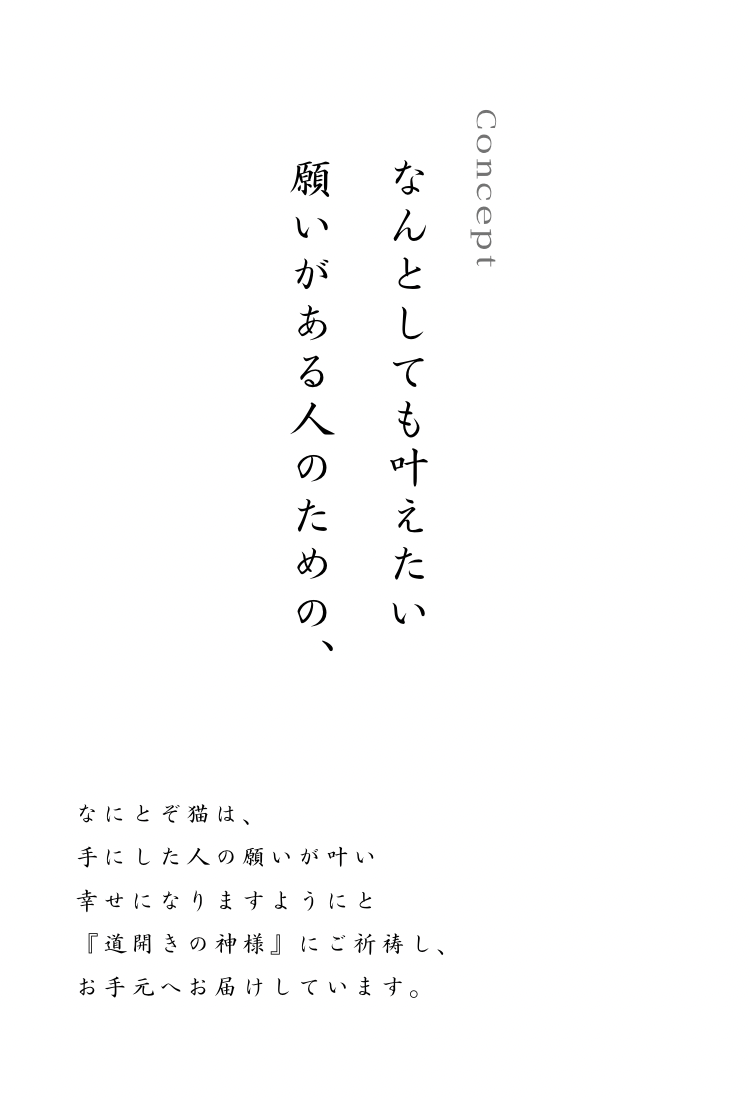 Concept
なんとしても叶えたい
願いがある人のための、
なにとぞ猫は、
手にした人の願いが叶い
幸せになりますようにと
『道開きの神様』にご祈祷し、
お手元へお届けしています。